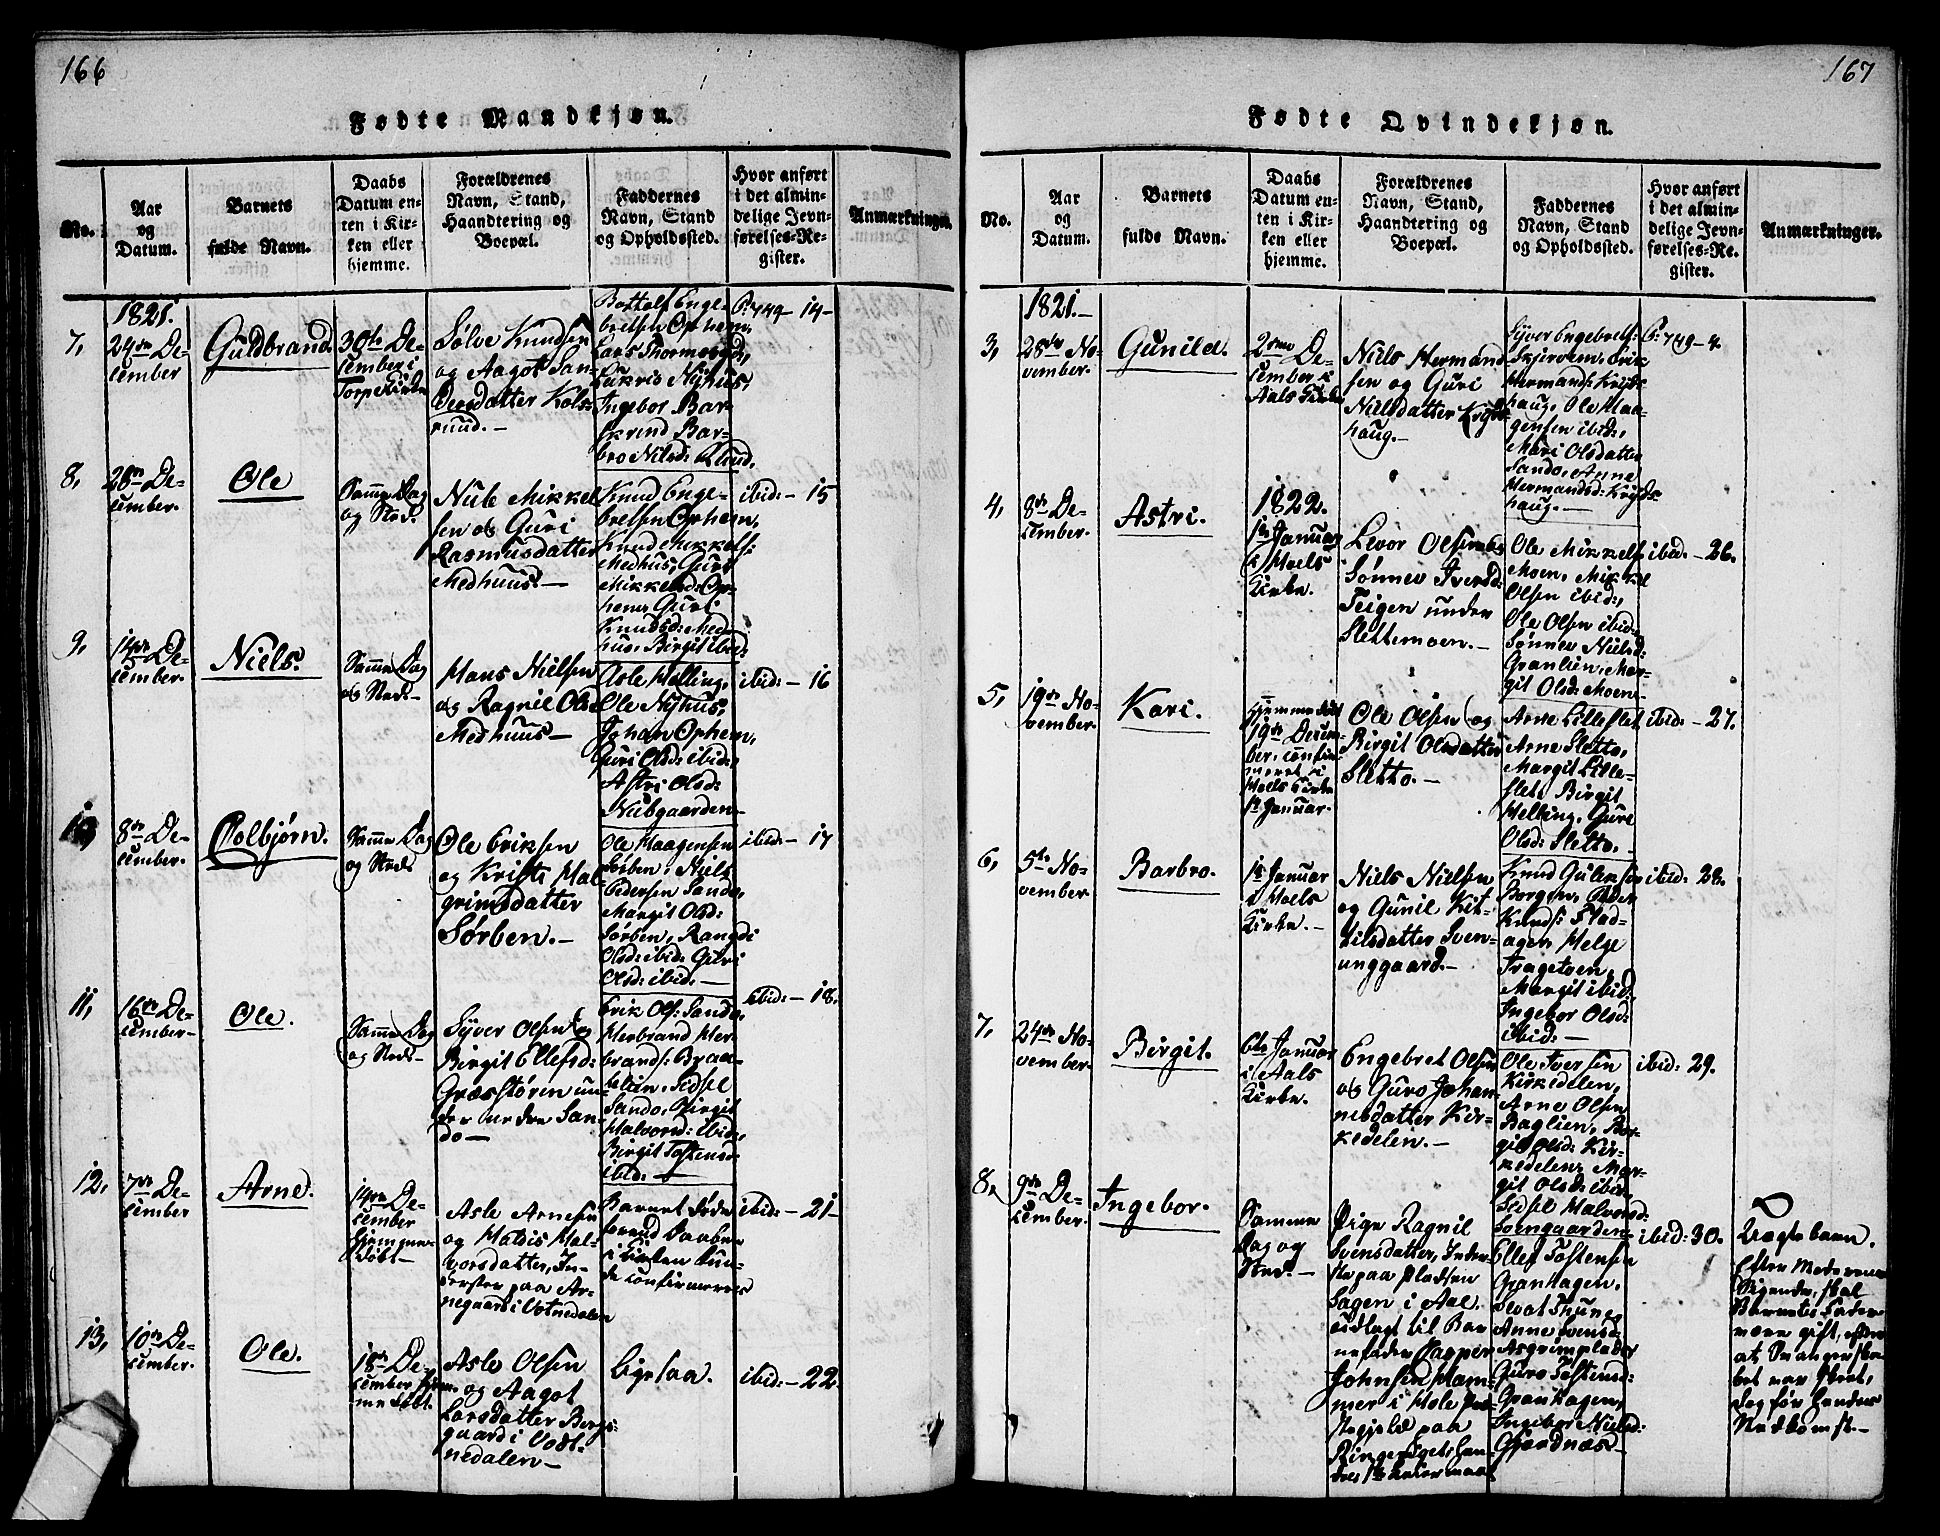 166
Fødte Mandkjøn.
No.
Aar
og
Datum.
Barnets
fulde Navn.
Daabs
Datum en-
ten i Kir-
ken eller
hjemme.
Forældrenes
Navn, Stand,
Haandtering og
Boepæl.
Faddernes
Navn, Stand
og Opholdssted.
Hvor anført
i det almin-
delige Jevn-
førelses-Re-
gister.
Anmærkninger.
1821.
7,
24de De-
cember
Guldbrand.
30te De-
cember i
Torpe Kirke
Sølve Knudsen
og Aagot San-
dersdatter Kols-
rud.-
Bottolf Enge-
bretsen Ophem,
Lars Thormodgd,
Lukris Nyhus,
Ingebor Bar-
skrind Bar-
bro Nilsd: Ruud.
P: 749- 14-
8,
28de De-
cember.
Ole
Samme Dag
og Sted.
Nub Mikkel-
sen og Guri
Rasmusdatter
Medhuus.-
Knud Enge-
bretsen Ophem,
Knud Mikkels:
Medhus, Guri
Mikkelsd: Op-
hem, Guri
Knudsd: Med-
hus, Birgit ibid:
ibid:- 15
9,
14de De-
cember.
Niels.
Samme Dag
og Sted-
Hans Nielsen
og Ragnil Olsd
Medhuus-
Asle Helling,
Ole Nyhus,
Johan Ophem,
Guri Olsd: ibid:
Astri Olsd:
Nubgaarden-
ibid:- 16
10
8de De-
cember.
Colbjørn.
Samme Dag
og Sted
Ole Eriksen
og Kristi Hal-
grimsdatter
Sørben.-
Ole Haagensen
Sørben, Niels
Pedersen Sando,
Margit Olsd:
Sørben, Rangdi
Olsd: ibid: Guri
Olsd: ibid:-
ibid:- 17
11,
16de De-
cember-
Ole.
Samme Dag
og Sted-
Syver Olsen og
Birgit Ellefsd:
Græsstøren un-
der nedre San-
do-
Erik Ols: Sando,
Herbrand Her-
brands: Braa-
ten, Sidsel
Sando, Birgit
Halvorsd: ibid:
Birgit Tostensd
ibid:-
ibid:- 18.
12,
7de De-
cember
Arne.
14de De-
cember
hjemme-
døbt-
Asle Arnesen
og Maldis Hal-
vorsdatter, In-
derster paa Ar-
negaard i Votnedalen
Barnet døde
forend Daaben
i Kirken kun-
de confirmeres
ibid:- 21-
13,
10de De-
cember.
Ole.
18de De-
cember hjem-
me døbt.
Asle Olsen
og Aagot
Larsdatter Bergs-
gaard i Vodt-
nedalen-
Ligesaa.
ibid:- 22
167
Fødte Qvindekjøn.
No.
Aar
og
Datum.
Barnets
fulde Navn.
Daabs
Datum en-
ten i Kir-
ken eller
hjemme.
Forældrenes
Navn, Stand,
Haandtering og
Boepæl.
Faddernes
Navn, Stand
og Opholdssted.
Hvor anført
i det almin-
delige Jevn-
førelses-Re-
gister.
Anmærkninger.
1821.-
3,
28de No-
vember.
Gunild.
2den De-
cember i
Aals Kirke
Niels Hermand-
sen og Guri
Nielsdatter Kryds-
haug.-
Syver Engebrets:
Skjervem, Erik
Hermands: Kryds-
haug, Ole Haa-
gensen ibid:,
Mari Olsdatter
Sando, Anne
Hermandsd: Kryds-
haug.-
P: 749- 4.
4,
8de De-
cember.
Astri.
1822.
1te Januar
i Hoels
Kirke.
Levor Olsen og
Sønnev Iversd:
Teigen under
Slettemoen.-
Ole Mikkelsen
Moen, Mikkel
Olsen ibid:,
Ole Olsen ibid:
Sønnev Nielsd:
Granlien, Mar-
git Olsd: Moen-
ibid:- 26.
5,
19de No-
vember.
Kari.
hjemmedøbt
19de Decem-
ber, confir-
meret i
Hoels Kirke
1te Januar.
Ole Olsen og
Birgit Olsdatter
Sletto.-
Arne Lilleslet
Arne Sletto,
Margit Lille-
slet, Birgit
Helling, Guri
Olsd: Sletto.-
ibid:- 27.
6,
5te No-
vember.
Barbro.
1te Januar
i Hoels
Kirke.-
Niels Nielsen
og Gunil Kit-
tilsdatter Sven-
unggaard.-
Knud Guleksen
Borgen, Peder
Knuds: Slad-
agen Helge
Tragetøen,
Margit ibid,
Ingebor Olsd:
ibid:-
ibid:- 28.
7,
24de No-
vember.
Birgit.
6te Januar
i Aals
Kirke.
Engebret Olsen
og Guro Johan-
nesdatter Kir-
kedelen.-
Ole Iversen
Kirkedelen,
Arne Olsen
Baglien, Bir-
git Olsd: Kir-
kedelen, Mar-
git Olsd: ibid:
Sidsel Halvorsd:
Svengaarden-
ibid: 29.
8,
9de De-
cember.
Ingebor.
Samme
Dag og
Sted.-
Pige Ragnil
Svensdatter, Inder-
ste paa Pladsen
Hagen i Aal
udlagt til Bar-
nefader Casper
Johnsen Ham-
mer i Hole Præ-
stegjeld paa
Ringeriget,
Ellef Tostensen
Granhagen,
Sevat Thune,
Anne Svensd:
Asgrimplads
Guro Tostensd:
Granhagen,
Ingebor Nielsd:
Gjerdnæs-
ibid: 30.
Uægte barn.
Efter Moderens
Sigende, skal
Barnets Fader
være gift, efter
at Svangerska-
bet var skeet,
dog før hendes
Nedkomst-